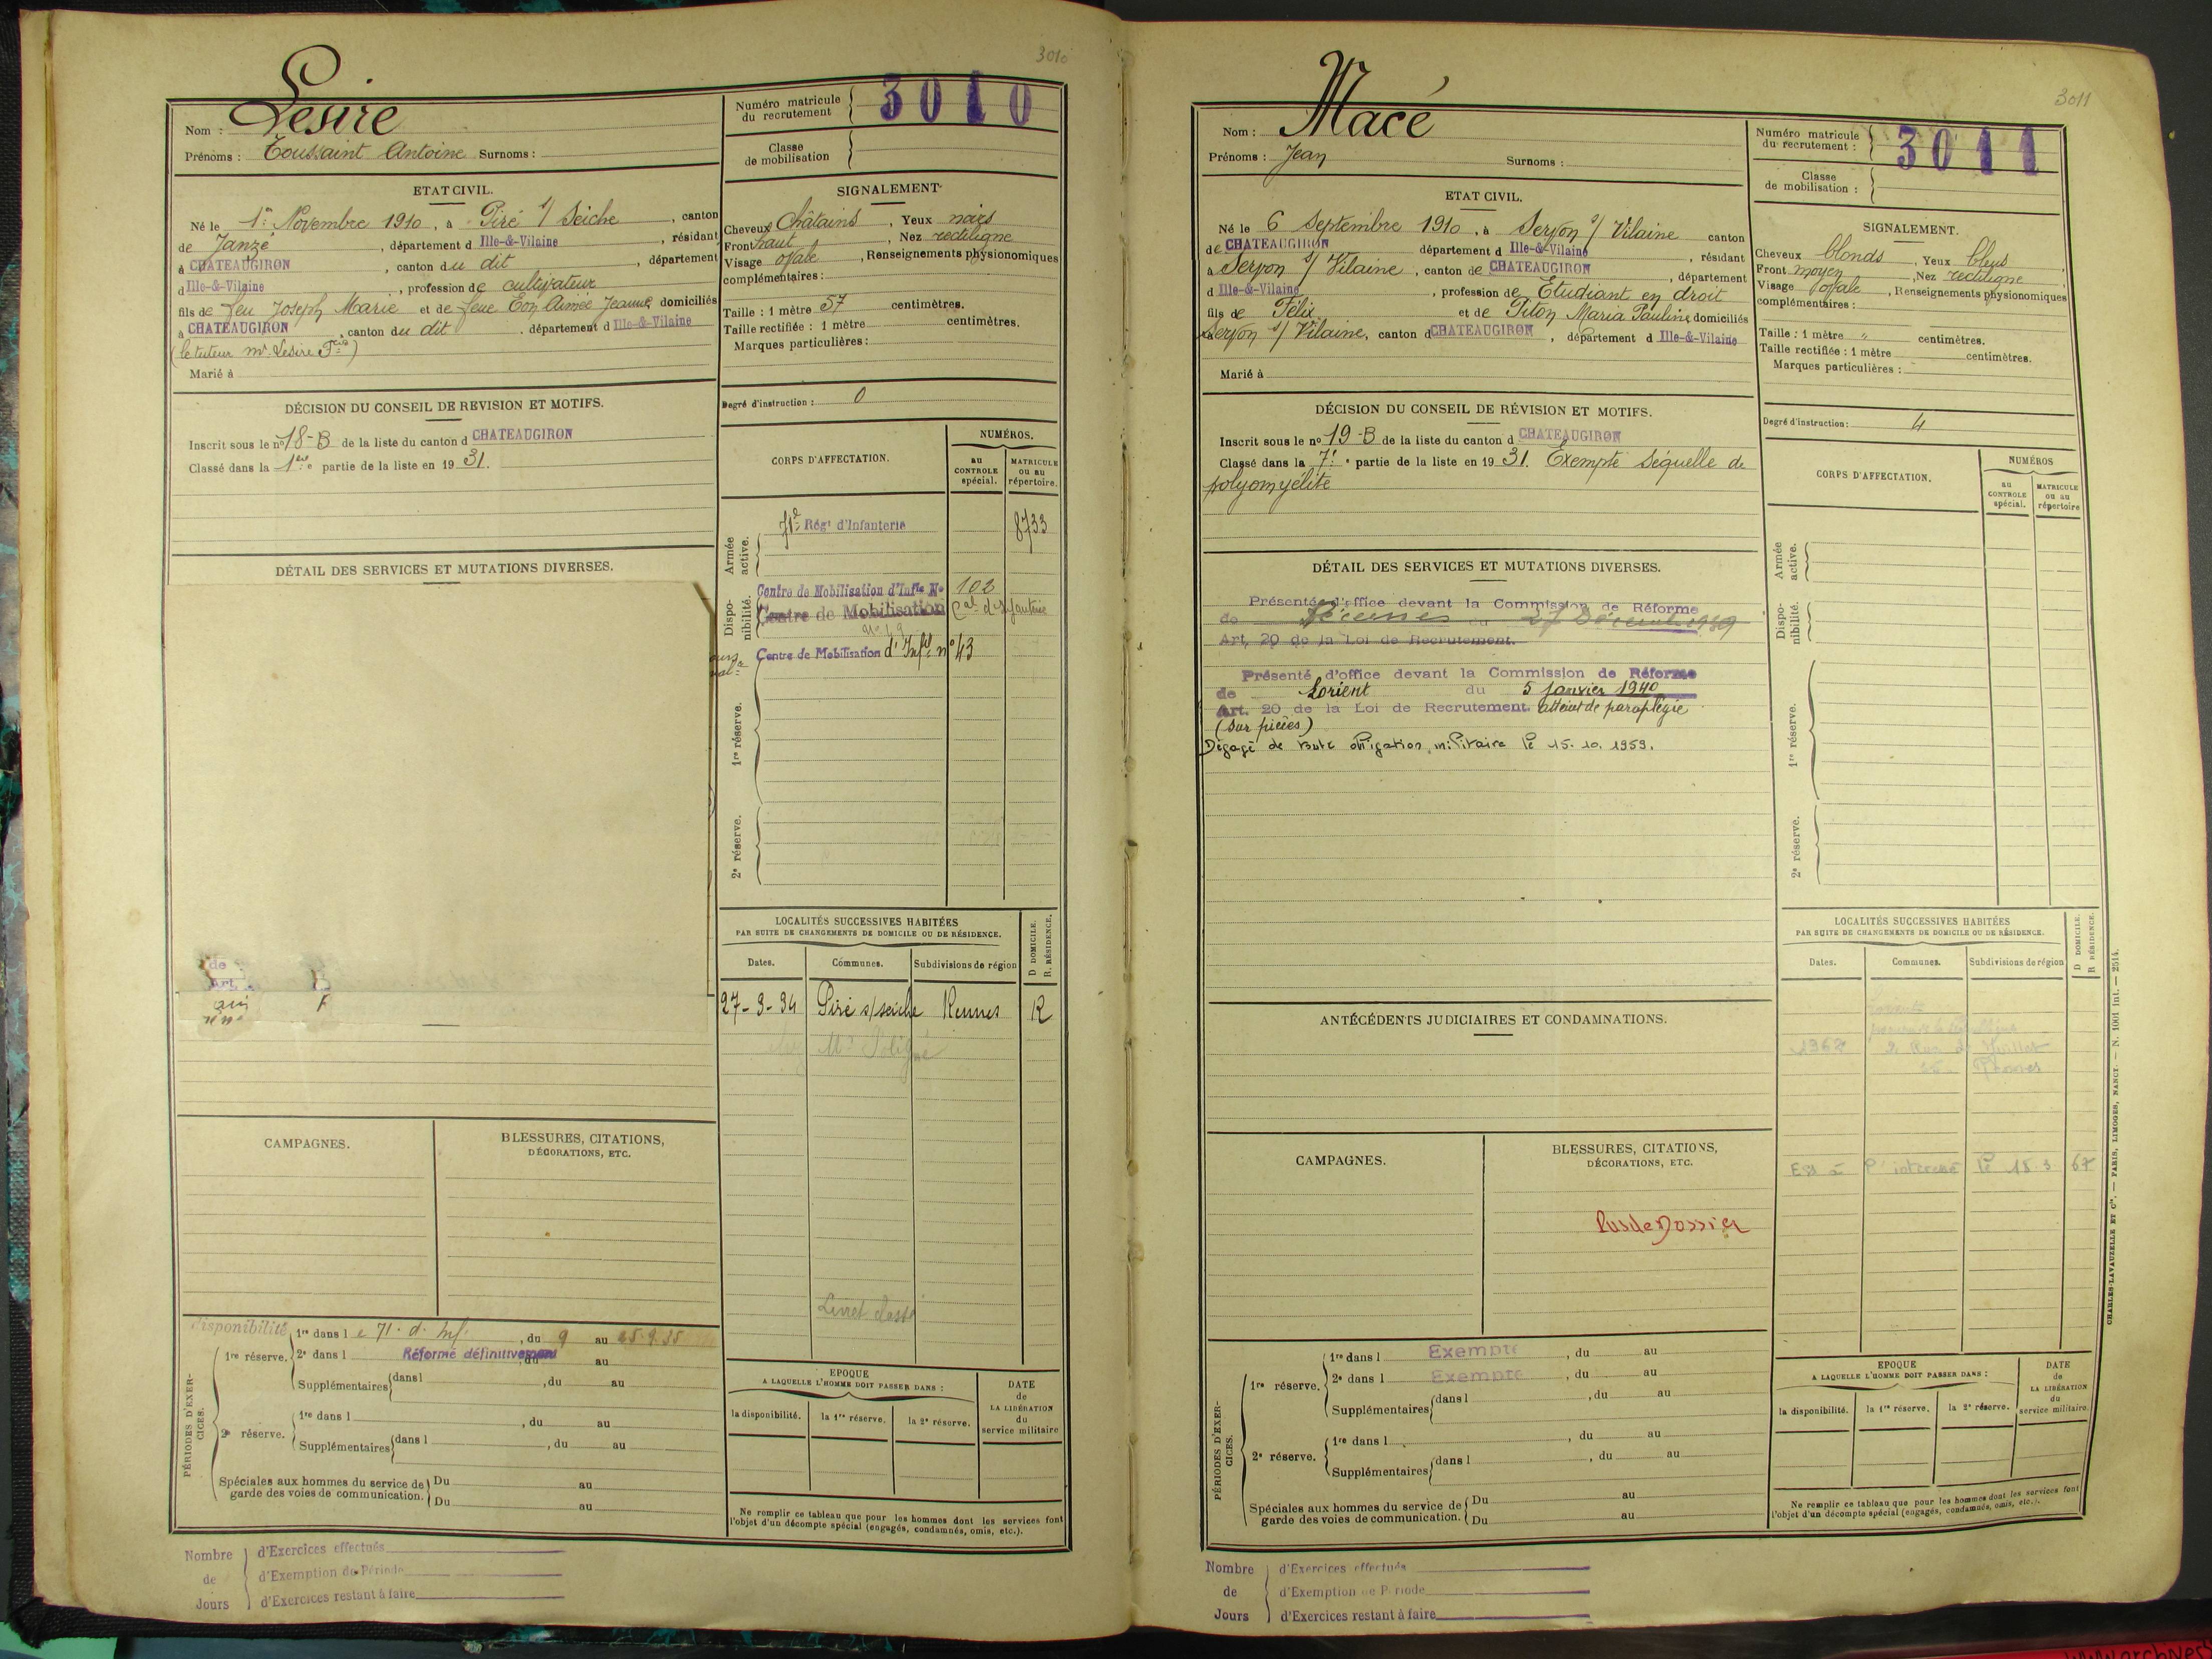 3010
Nom : Lesire
Prénoms : Toussaint Antoine Surnoms :
Numéro matricule du recrutement 3010
Classe de mobilisation
ETAT CIVIL.
Né le 1er Novembre 1910, à Piré s/ Seiche, canton
de Janzé, département d Ille-&-Vilaine, résidant
à CHATEAUGIRON, canton du dit, département
d Ille-&-Vilaine, profession de cultivateur
fils de feu Joseph Marie et de feue Eon Aimée Jeanne domiciliés
à CHATEAUGIRON, canton du dit, département d Ille-&-Vilaine
(le tuteur Mr Lesire Fcis)
Marié à
SIGNALEMENT
Cheveux châtains, Yeux noirs
Front haut, Nez rectiligne
Visage ovale, Renseignements physionomiques
complémentaires :
Taille : 1 mètre 57 centimètres.
Taille rectifiée : 1 mètre centimètres.
Marques particulières :
Degré d'instruction : 0
DÉCISION DU CONSEIL DE REVISION ET MOTIFS.
Inscrit sous le no 18-B de la liste du canton d CHATEAUGIRON
Classé dans la 1ère partie de la liste en 1931.
DÉTAIL DES SERVICES ET MUTATIONS DIVERSES.
de
Art
CORPS D'AFFECTATION.
NUMÉROS.
au CONTROLE spécial.
MATRICULE ou au répertoire.
Armée active.
71e Régt d'Infanterie 8733
Dispo-nibilité.
Centre de Mobilisation d'Infie No 102
Centre de Mobilisation Cal d'Infanterie
Centre de Mobilisation d'Infie no 43
1re réserve.
2e réserve.
LOCALITÉS SUCCESSIVES HABITÉES
PAR SUITE DE CHANGEMENTS DE DOMICILE OU DE RÉSIDENCE.
D DOMICILE.
R. RÉSIDENCE.
Dates. Communes. Subdivisions de région
27-3-34 Piré s/seiche Rennes R
Livret classé
CAMPAGNES.
BLESSURES, CITATIONS,
DÉCORATIONS, ETC.
PÉRIODES D'EXERCICES.
disponibilité
1re réserve. 1re dans l e 71e d. Inf., du 9 au 25.9.35
2e dans l Réformé définitivement, du au
Supplémentaires dans l, du au
2e réserve. 1re dans l, du au
Supplémentaires dans l, du au
Spéciales aux hommes du service de garde des voies de communication. Du au
Du au
EPOQUE
A LAQUELLE L'HOMME DOIT PASSER DANS :
la disponibilité. la 1re réserve. la 2e réserve.
DATE de LA LIBÉRATION du service militaire
Ne remplir ce tableau que pour les hommes dont les services font
l'objet d'un décompte spécial (engagés, condamnés, omis, etc.).
Nombre de Jours
d'Exercices effectués
d'Exemption de Période
d'Exercices restant à faire
3011
Nom : Macé
Prénoms : Jean Surnoms :
Numéro matricule du recrutement : 3011
Classe de mobilisation :
ETAT CIVIL.
Né le 6 Septembre 1910, à Servon s/ Vilaine canton
de CHATEAUGIRON département d Ille-&-Vilaine, résidant
à Servon s/ Vilaine, canton de CHATEAUGIRON, département
d Ille-&-Vilaine, profession de Etudiant en droit
fils de Félix et de Piton Maria Pauline domiciliés
à Servon s/ Vilaine, canton d CHATEAUGIRON, département d Ille-&-Vilaine
Marié à
SIGNALEMENT.
Cheveux blonds, Yeux bleus
Front moyen, Nez rectiligne
Visage ovale, Renseignements physionomiques
complémentaires :
Taille : 1 mètre " centimètres.
Taille rectifiée : 1 mètre centimètres.
Marques particulières :
Degré d'instruction : 4
DÉCISION DU CONSEIL DE RÉVISION ET MOTIFS.
Inscrit sous le no 19-B de la liste du canton d CHATEAUGIRON
Classé dans la 7e partie de la liste en 1931. Exempté séquelle de
polyomyelite
DÉTAIL DES SERVICES ET MUTATIONS DIVERSES.
Présenté d'office devant la Commission de Réforme
de Rennes du 27 Décembre 1939
Art. 20 de la Loi de Recrutement.
Présenté d'office devant la Commission de Réforme
de Lorient du 5 janvier 1940
Art. 20 de la Loi de Recrutement. atteint de paraplégie
(sur pièces)
Dégagé de toute obligation militaire le 15.10.1959.
CORPS D'AFFECTATION.
NUMÉROS
au CONTROLE spécial.
MATRICULE ou au répertoire
Armée active.
Dispo-nibilité.
1re réserve.
2e réserve.
LOCALITÉS SUCCESSIVES HABITÉES
PAR SUITE DE CHANGEMENTS DE DOMICILE OU DE RÉSIDENCE.
D DOMICILE.
R RÉSIDENCE.
Dates. Communes. Subdivisions de région
1962 2 Rue de
ESS à l'intéressé le 15 3 67
ANTÉCÉDENTS JUDICIAIRES ET CONDAMNATIONS.
CAMPAGNES.
BLESSURES, CITATIONS,
DÉCORATIONS, ETC.
Pas de Dossier
PÉRIODES D'EXERCICES.
1re réserve. 1re dans l Exempté, du au
2e dans l Exempté, du au
Supplémentaires dans l, du au
2e réserve. 1re dans l, du au
Supplémentaires dans l, du au
Spéciales aux hommes du service de garde des voies de communication. Du au
Du au
EPOQUE
A LAQUELLE L'HOMME DOIT PASSER DANS :
la disponibilité. la 1re réserve. la 2e réserve.
DATE de LA LIBÉRATION du service militaire.
Ne remplir ce tableau que pour les hommes dont les services font
l'objet d'un décompte spécial (engagés, condamnés, omis, etc.).
Nombre de Jours
d'Exercices effectués
d'Exemption de Période
d'Exercices restant à faire
CHARLES-LAVAUZELLE ET Cie. — PARIS, LIMOGES, NANCY. — N. 1001 int. — 2514.